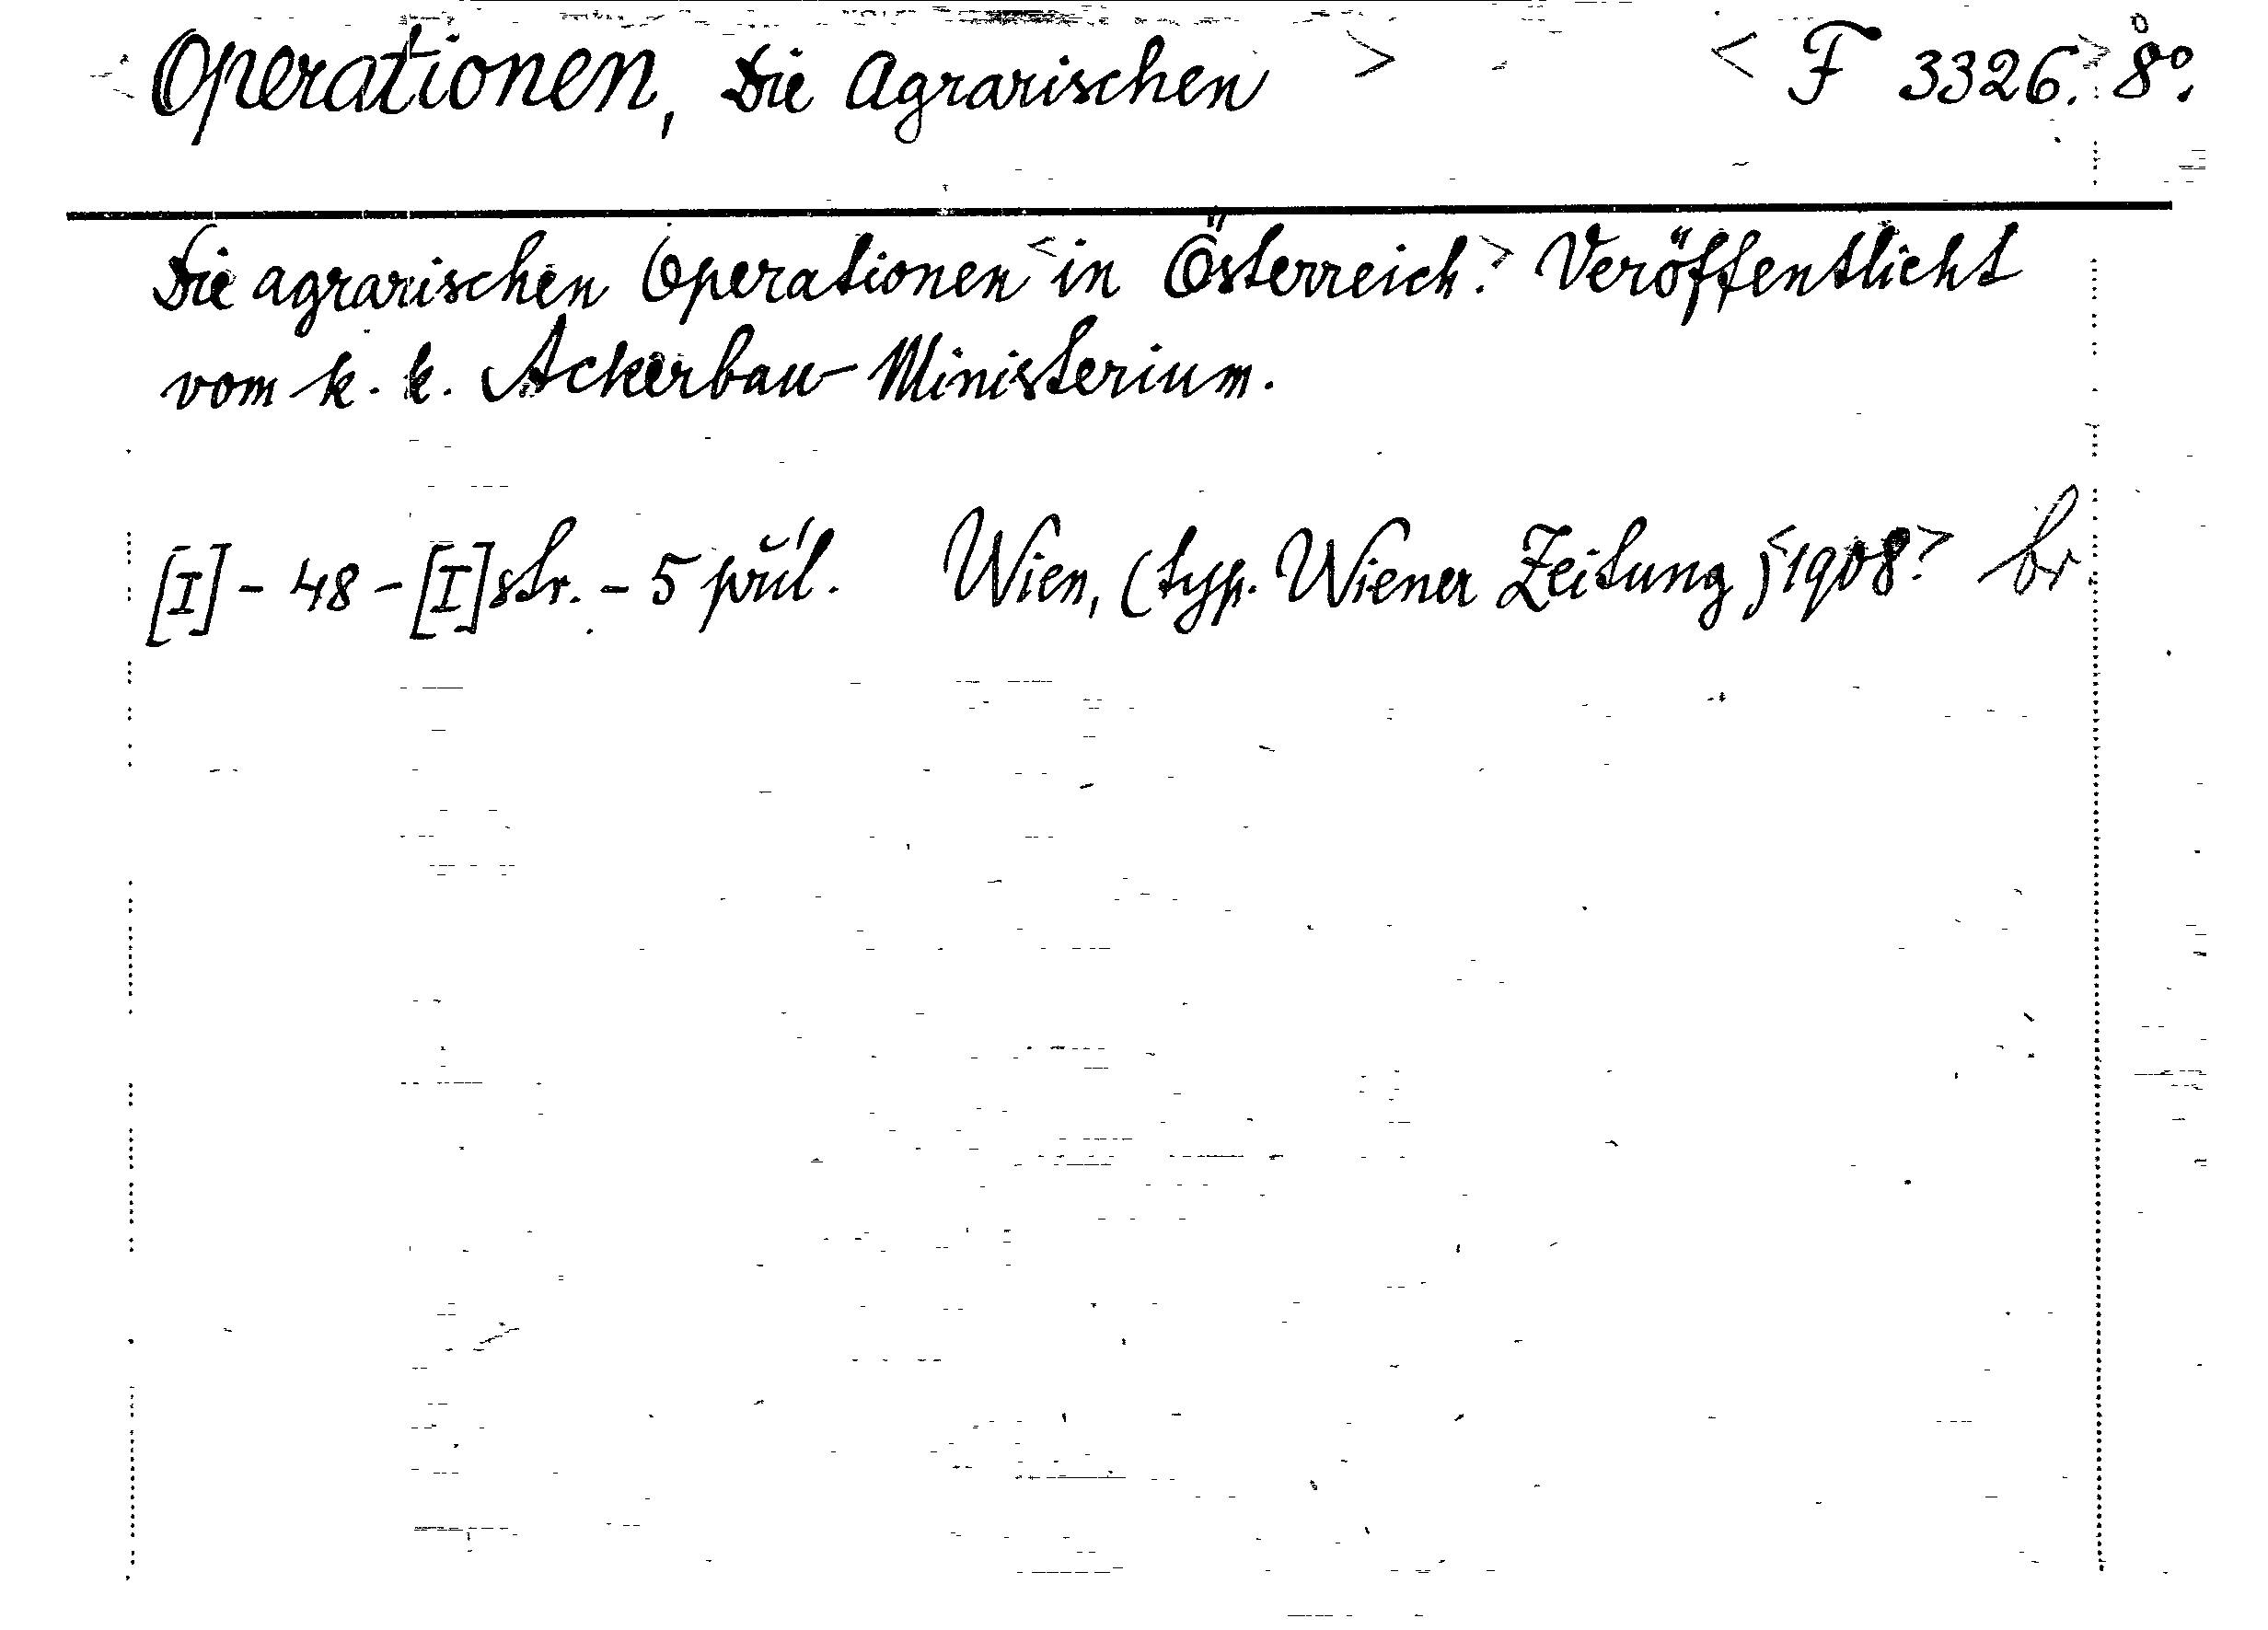 < Operationen, Die Agrarischen > < F 3326.> 8°.
Die agrarischen Operationen <in Österreich.> Veröffentlicht
vom k. k. Ackerbau-Ministerium.
[I] - 48 - [I] str. - 5 příl. Wien, (typ. Wiener Zeitung) <1908.> br.